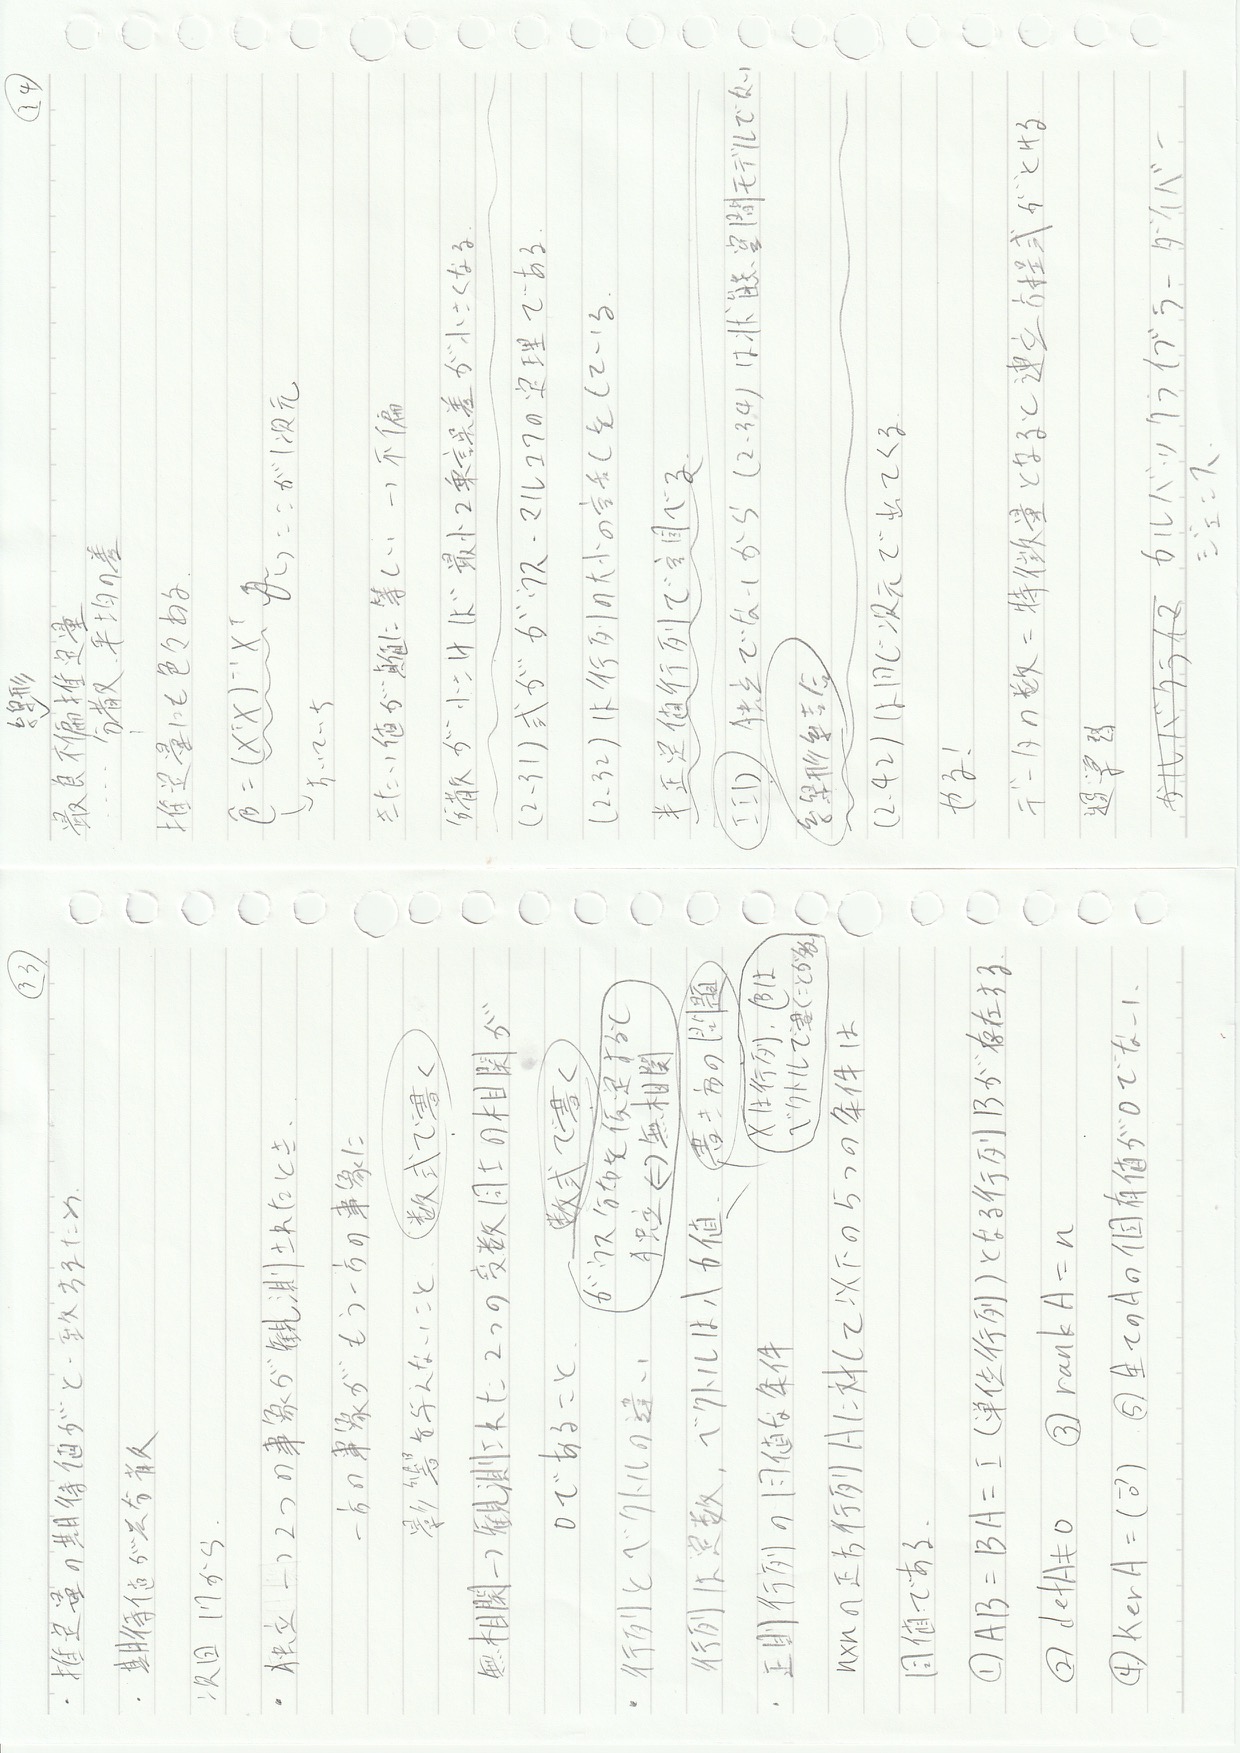 33
・推定量の期待値がと一致するため.
・期待値が共分散
次回 17から.
・独立→2つの事象が観測されたとき、
一方の事象がもう一方の事象に
影響を与えないこと. 数式で書く
無相関→観測された2つの変数同士の相関が
0であること. 数式で書く
ガウス分布を仮定すると
独立⇔無相関
・行列とベクトルの違い
行列は定数, ベクトルは入力値. 書き方の問題
Xは行列, βは
ベクトルで書くことが多
・正則行列の同値な条件
n×nの正方行列Aに対して以下の5つの条件は
同値である.
① AB = BA = I (単位行列)となる行列Bが存在する.
② detA≠0 ③ rank A = n
④ Ker A = (0⃗) ⑤ 全てのAの固有値が0でない.
34
線形
最良不偏推定量
.... 分散. 平均の差
推定量にも色々ある.
β̂ = (XᵀX)⁻¹Xᵀ y → ここが1次元
すいていち
きたい値が真値に等しい → 不偏
分散が小さければ 最小2乗誤差が小さくなる.
(2.31)式がガウス・マルコフの定理である.
(2.32)は行列の大小の話しをしている.
半正定値行列で調べる.
III) 独立でないから (2.34)は状態空間モデルでない
線形結合
(2.42)は同じ次元で出てくる.
やる!
データの数 = 特徴量となると連立方程式がとける.
過学習
カルバックライブラーダイバー
ジェンス.